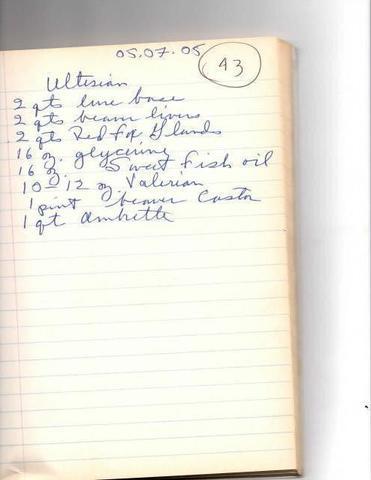 05.07.05
43
Ultesian
2 qts lure base
2 qts beaver livers
2 qts Red Fox Glands
16 oz. glycerine
16 oz. Sweet Fish oil
10-12 oz Valerian
1 pint beaver Castor
1 qt ambrette